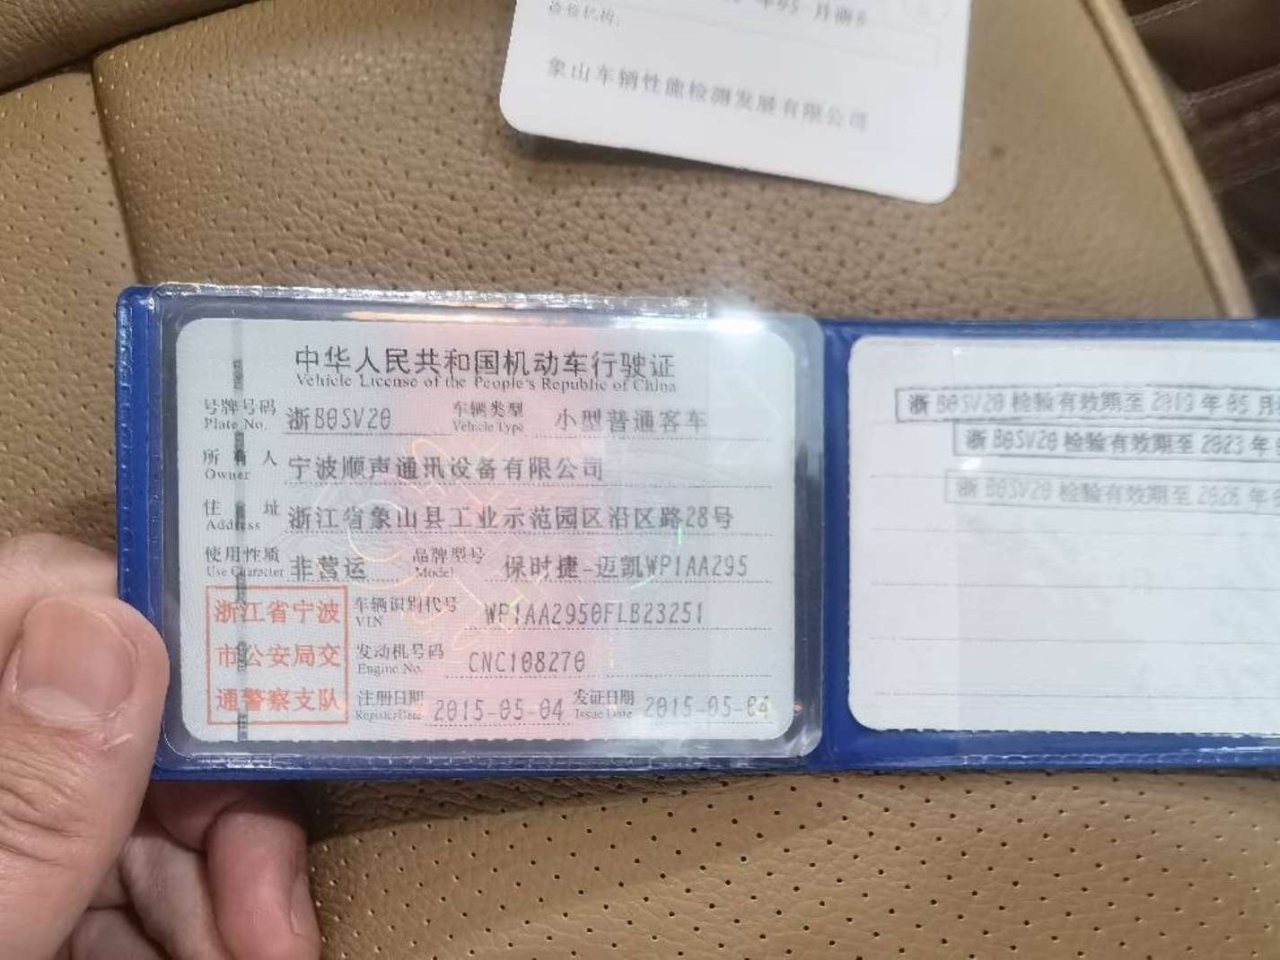 检验机构:
象山车辆性能检测发展有限公司
中华人民共和国机动车行驶证
Vehicle License of the People's Republic of China
号牌号码 浙B0SV20 车辆类型 小型普通客车
Plate No. Vehicle Type
所有人 宁波顺声通讯设备有限公司
Owner
住址 浙江省象山县工业示范园区沿区路28号
Address
使用性质 非营运 品牌型号 保时捷-迈凯WP1AA295
Use Character Model
浙江省宁波 车辆识别代号 WP1AA2950FLB23251
VIN
市公安局交 发动机号码 CNC108270
Engine No.
通警察支队 注册日期 2015-05-04 发证日期 2015-05-04
Register Date Issue Date
浙B0SV20检验有效期至2019年05月
浙B0SV20检验有效期至2023年
浙B0SV20检验有效期至2026年